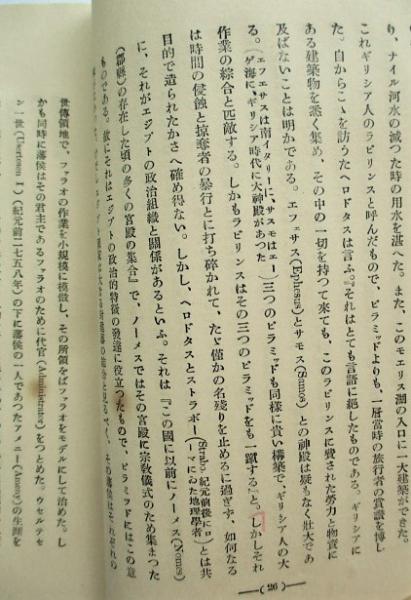 り、ナイル河水の減つた時の用水を湛へた。また、このモエリス湖の入口に一大建築ができた。
これギリシア人のラビリンスと呼んだもので、ピラミッドよりも、一層當時の旅行者の賞讃を博し
た。自からこゝを訪うたヘロドタスは言ふ。『それはとても言語に絶したものである。ギリシアに
ある建築物を悉く集め、その中の一切を持つて來ても、このラビリンスに費された勞力と物資に
及ばないことは明かである。エフェサス(Ephesus)とサモス(Samos)との神殿は疑もなく壯大であ
る。(エフェサスは南イタリーに、サスモはエーゲ海にギリシア時代に大神殿があつた)三つのピラミッドも同樣に貴い構築で、ギリシア人の大
作業の綜合と匹敵する。しかもラビリンスはその三つのピラミッドをも一蹴する』と。しかしそれ
は時間の侵蝕と掠奪者の暴行とに打ち碎かれて、たゞ僅かの名殘りを止めるに過ぎず、如何なる
目的で造られたかさへ確め得ない。しかし、ヘロドタスとストラボー(Strabo, 紀元前後にローマにゐた地理學者)とは共
に、それがエジプトの政治組織と關係があるといふ。それは『この國に以前にノーメス(Nomes)
(郡縣)の存在した頃の多くの宮殿の集合』で、ノーメスではその宮殿に宗教儀式のため集まつた
ものである。故にそれはエジプトの政治的特徴の發達に役立つたもので、ピラミッドにはこの意
世傳領地で、ファラオの作業を小規模に模倣し、その所領をばファラオをモデルにして治めた。し
かも同時に藩侯はその君主であるファラオのために代官(Administrator)をつとめた。ウセルテセ
ン一世(Usertosen I.)(紀元前二七五八年)の下に藩侯の一人であつたアメニー(Ameny)の生涯を
—( 26 )—